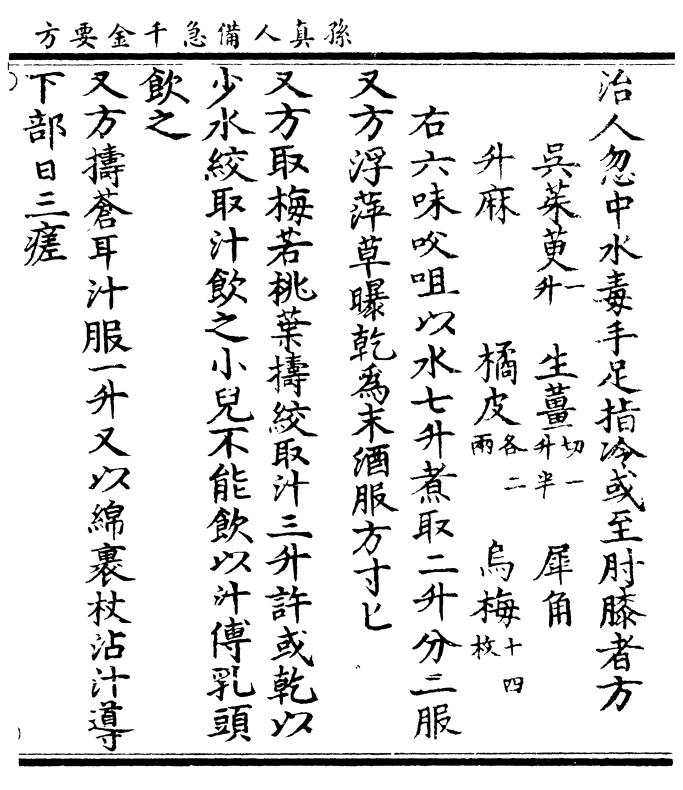 孫真人備急千金要方
治人忽中水毒手足指冷或至肘膝者方
吳茱萸一升 生薑切一升半 犀角
升麻 橘皮各二兩 烏梅十四枚
右六味㕮咀以水七升煮取二升分二服
又方浮萍草曝乾爲末酒服方寸匕
又方取梅若桃葉擣絞取汁三升許或乾以
少水絞取汁飲之小兒不能飲以汁傅乳頭
飲之
又方擣蒼耳汁服一升又以綿裹杖沾汁導
下部日三瘥